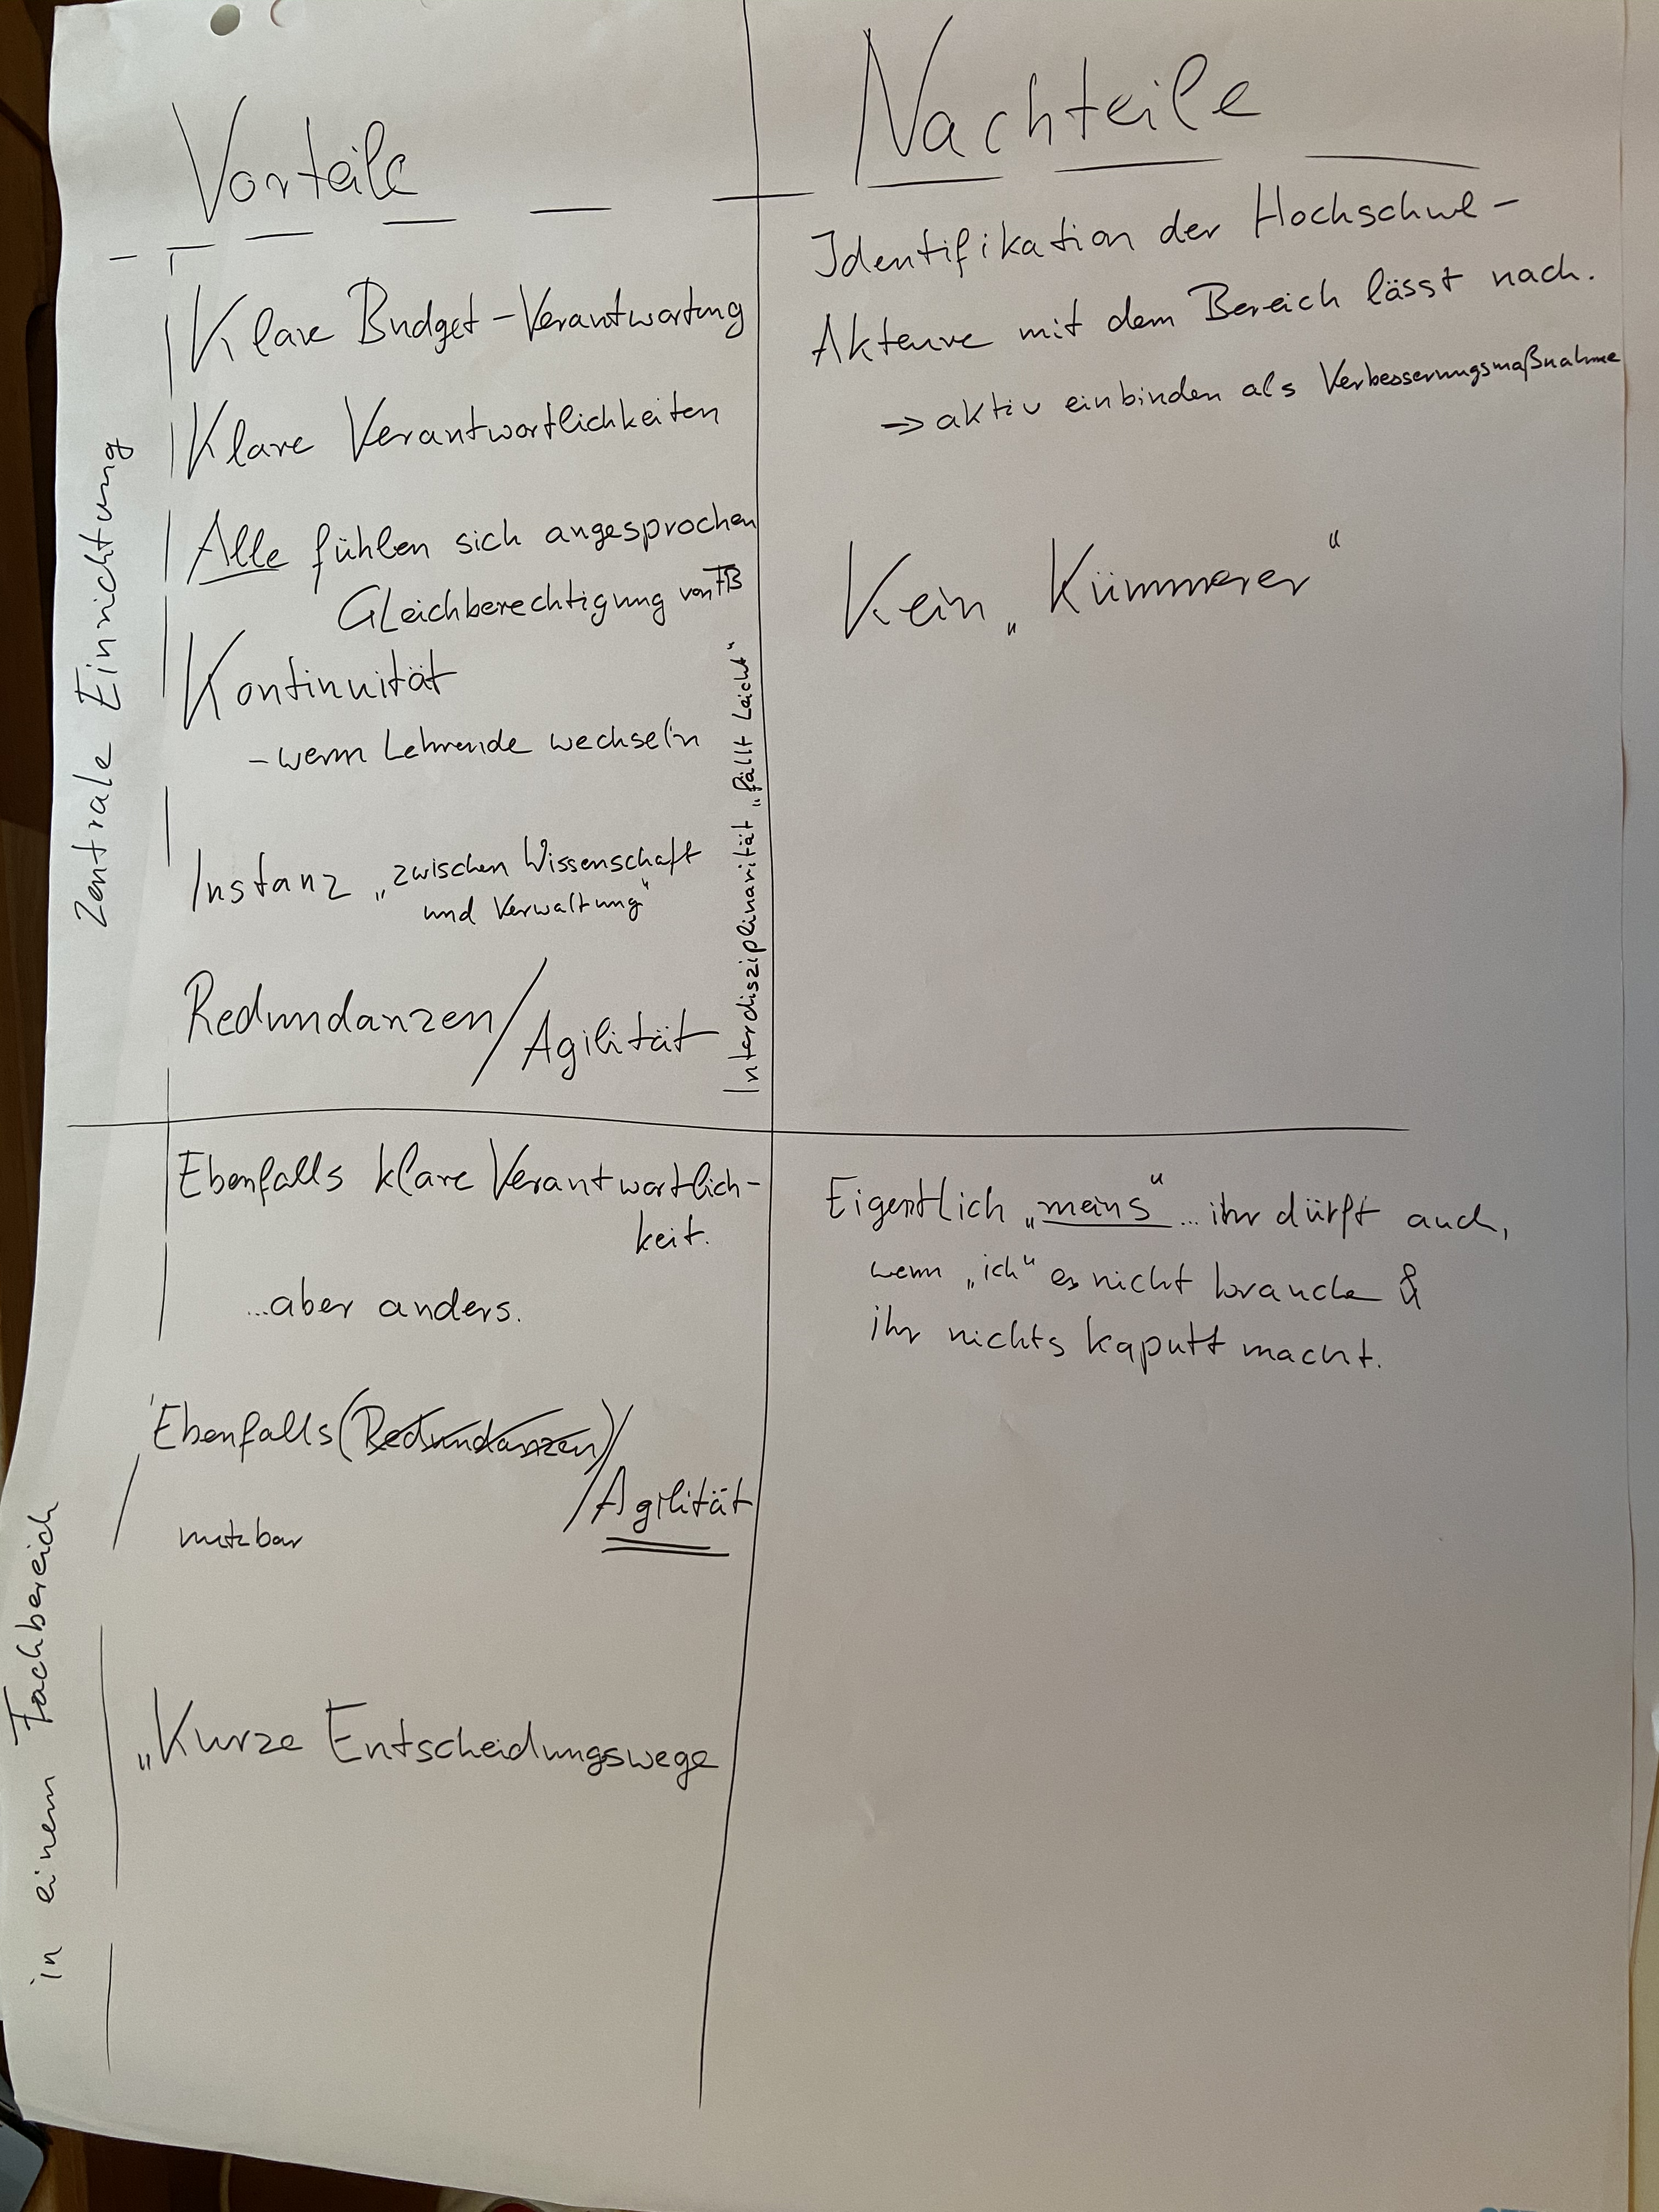 Vorteile
Nachteile
Zentrale Einrichtung
Klare Budget-Verantwortung
Klare Verantwortlichkeiten
Alle fühlen sich angesprochen
Gleichberechtigung von FB
Kontinuität
- wenn Lehrende wechseln
Instanz „zwischen Wissenschaft
und Verwaltung"
Redundanzen/Agilität
Interdisziplinarität „fällt leicht"
Identifikation der Hochschul-
Akteure mit dem Bereich lässt nach.
→ aktiv einbinden als Verbesserungsmaßnahme
Kein „Kümmerer"
in einem Fachbereich
Ebenfalls klare Verantwortlich-
keit.
...aber anders.
Ebenfalls (Redundanzen)/
/Agilität
nutzbar
„Kurze Entscheidungswege
Eigentlich „meins"... ihr dürft auch,
wenn „ich" es nicht brauche &
ihr nichts kaputt macht.